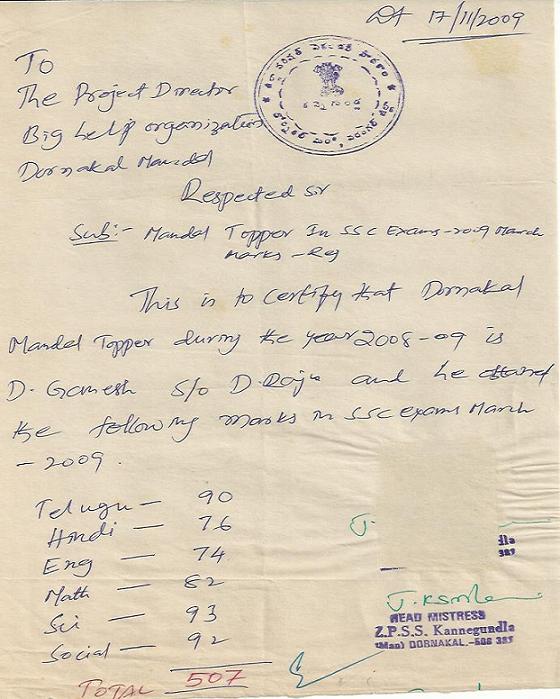 Dt 17/11/2009
To
The Project Director
Big help organization
Dornakal Mandal
Respected Sir
Sub:- Mandal Topper In SSC Exams-2009 March
marks - Reg
This is to certify that Dornakal
Mandal Topper during the year 2008-09 is
D. Ganesh S/o D. Raju and he
the following marks in SSC exams March
- 2009.
Telugu - 90
Hindi - 76
Eng - 74
Math - 82
Sci - 93
Social - 92
TOTAL 507
HEAD MISTRESS
Z.P.S.S. Kannegundla
(Man) DORNAKAL.-506 381